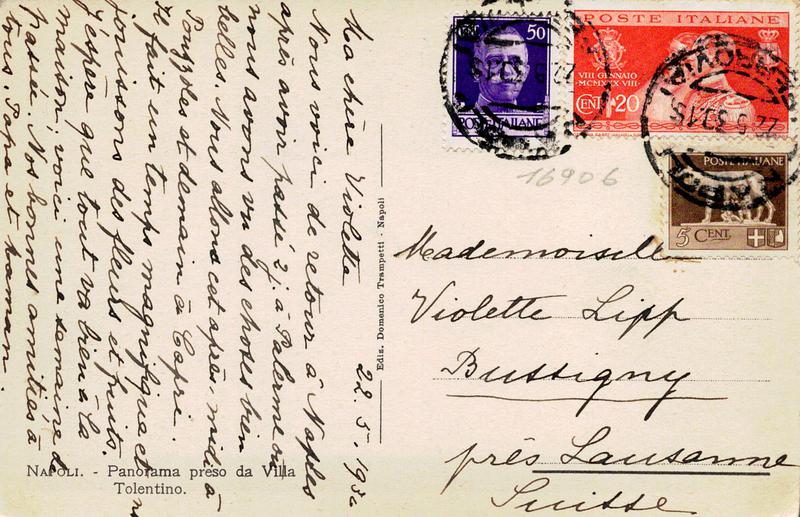 Ma chère Violette 22.5.1930
Nous voici de retour à Naples
après avoir passé 2 j. à Palerme où
nous avons vu des choses bien
belles. Nous allons cet après midi à
Pompéï et demain à Capri.
Il fait un temps magnifique et n.
jouissons des fleurs et fruits.
J'espère que tout va bien à la
maison, voici une semaine de
passée. Nos bonnes amitiés à
tous. Papa et maman.
Ediz. Domenico Trampetti - Napoli
NAPOLI. - Panorama preso da Villa
Tolentino.
POSTE ITALIANE
50
POSTE ITALIANE
VIII GENNAIO
MCMXXX·VIII
CENT 20
22.5.30.15
NAPOLI
FERROVIA
POSTE ITALIANE
5 CENT.
16906
Mademoiselle
Violette Lipp
Bussigny
près Lausanne
Suisse